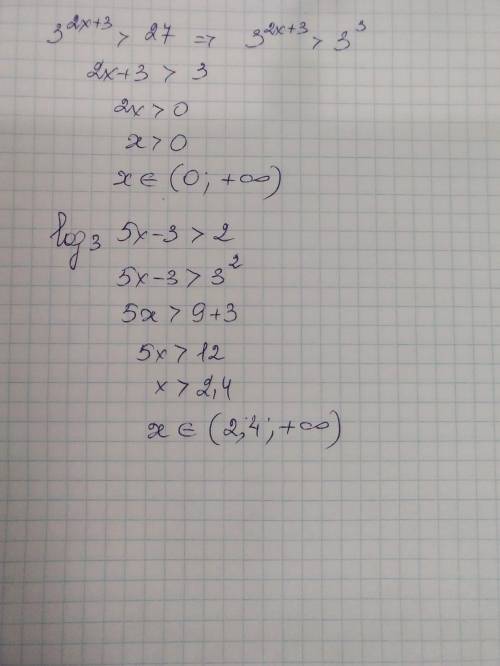 3^{2x+3} > 27 => 3^{2x+3} > 3^3
2x+3 > 3
2x > 0
x > 0
x ∈ (0; +∞)
log_3 5x-3 > 2
5x-3 > 3^2
5x > 9+3
5x > 12
x > 2,4
x ∈ (2,4; +∞)